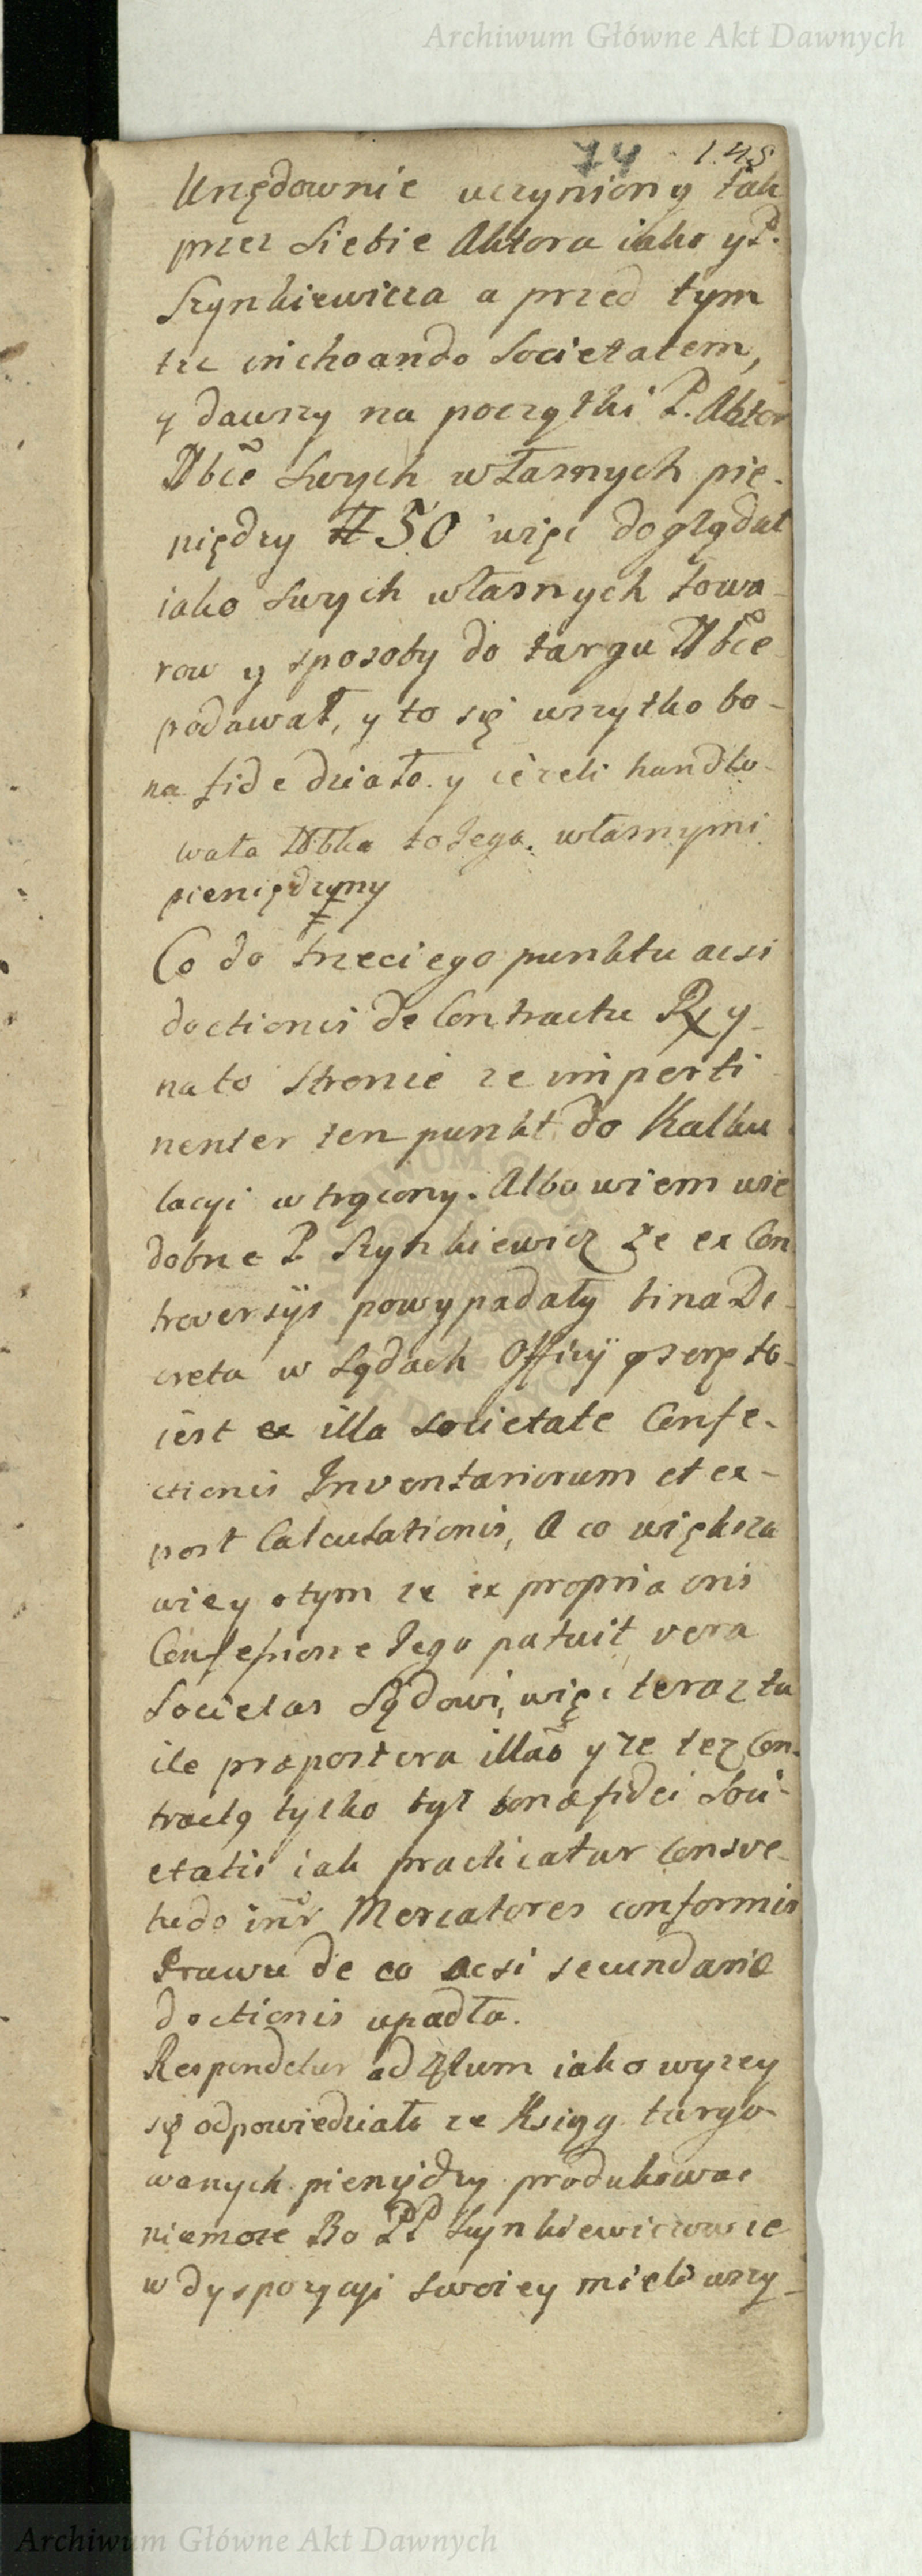 Archiwum Główne Akt Dawnych
74 145
Urzędownie uczyniony tak
przez Siebie Aktora iako y P.
Szynkiewicza a przed tym
tu inchoando Societatem,
y dawszy na początki P. Aktor
swych własnych pie-
niędzy # 50 więc doglądał
iako swych własnych towa-
row y sposoby do targu
podawał, y to się wszytko bo-
na fide działo. y ieżeli handlo-
wała to Jego własnymi
pieniędzmy
Co do trzeciego punktu acsi
doctionis de Contractu Rx y
na to stronie ze imperti
nenter ten punkt do Kalku
lacyi wtrącony. Albowiem wie
dobrze P Szynkiewicz że ex Con
troversijs powypadały bina De-
creta w Sądach Officij to
iest ex illa societate Confe-
ctionis Inventariorum et ex-
post Calculationis, A co większa
wie y o tym ze ex propria oris
Confessione Jego patuit vera
Societas Sądowi, więc teraz tu
ile præpostera illaõ y że też Con-
tractą tylko był bonæ fidei Soci-
etatis iak practicatur Consve-
tudo inr Mercatores conformis
Prawu de eo acsi secundariæ
doctionis upadła.
Respondetur ad 4tum iako wyzey
się odpowiedziało ze Ksiąg targo-
wanych pieniędzy produkowac
niemoze Bo PP Szynkiewiczowie
w dyspozycyi swoiey mieli wszy-
Archiwum Główne Akt Dawnych